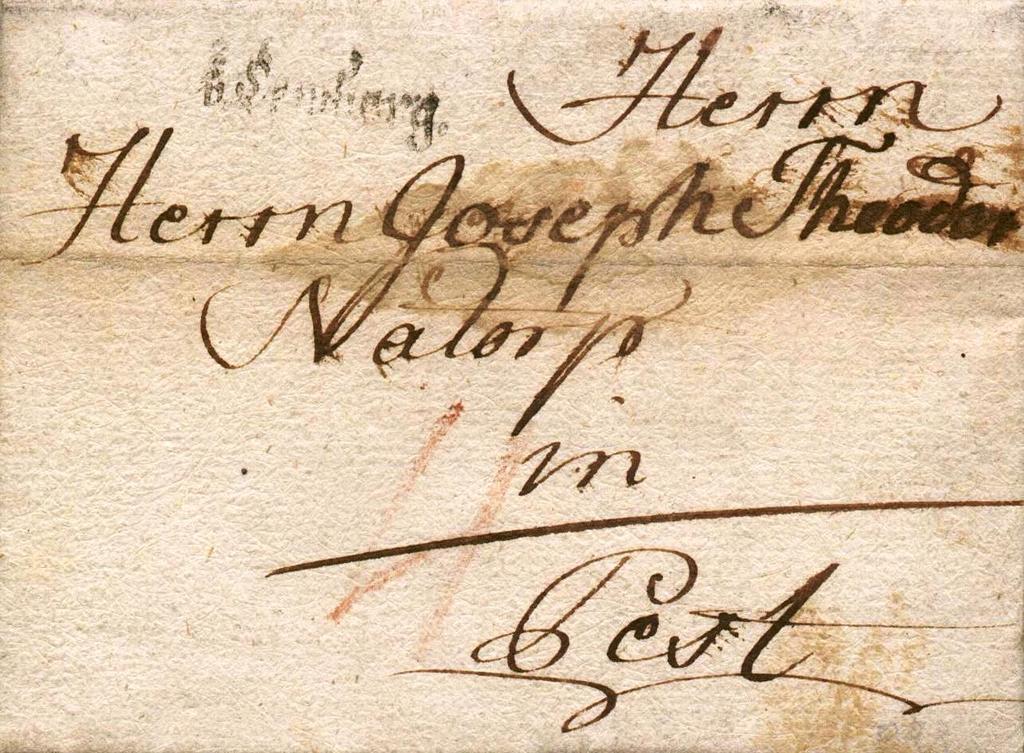 Herrn
Herrn Joseph Theodor
Natorp
in
Pest